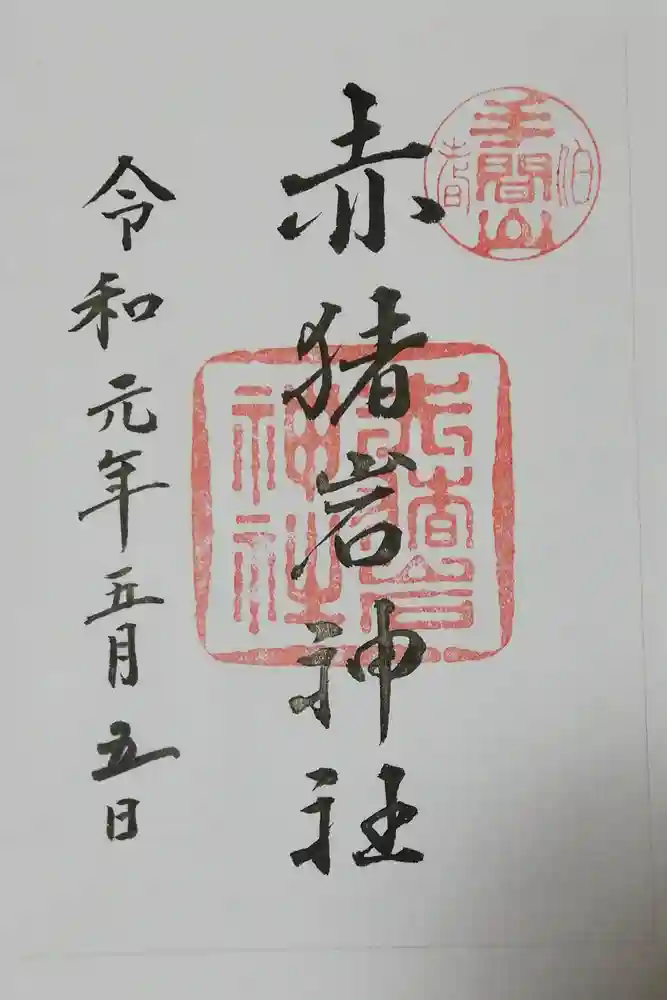 伯耆
手間山
赤猪岩神社
赤猪岩
神社
令和元年五月五日